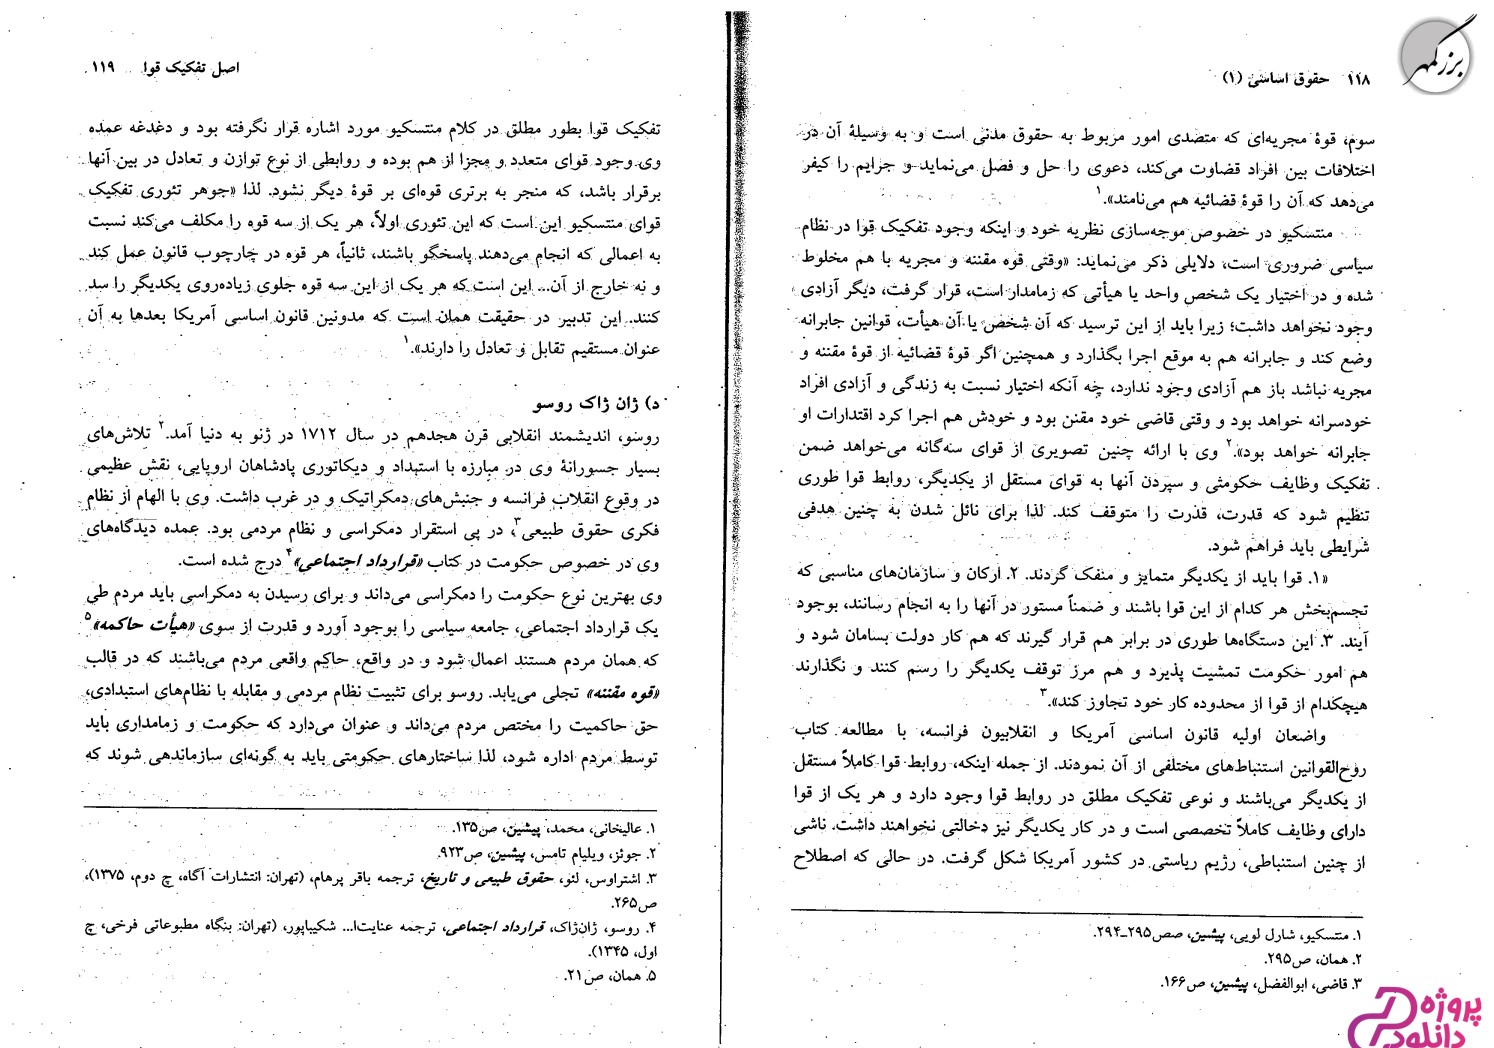 بزرگمهر
۱۱۸ حقوق اساسی (۱)
سوم، قوهٔ مجریه‌ای که متصدی امور مربوط به حقوق مدنی است و به وسیلهٔ آن در
اختلافات بین افراد قضاوت می‌کند، دعوی را حل و فصل می‌نماید و جرایم را کیفر
می‌دهد که آن را قوهٔ قضائیه هم می‌نامند».۱
منتسکیو در خصوص موجه‌سازی نظریه خود و اینکه وجود تفکیک قوا در نظام
سیاسی ضروری است، دلایلی ذکر می‌نماید: «وقتی قوه مقننه و مجریه با هم مخلوط
شده و در اختیار یک شخص واحد یا هیأتی که زمامدار است، قرار گرفت، دیگر آزادی
وجود نخواهد داشت؛ زیرا باید از این ترسید که آن شخص یا آن هیأت، قوانین جابرانه
وضع کند و جابرانه هم به موقع اجرا بگذارد و همچنین اگر قوهٔ قضائیه از قوهٔ مقننه و
مجریه نباشد باز هم آزادی وجود ندارد، چه آنکه اختیار نسبت به زندگی و آزادی افراد
خودسرانه خواهد بود و وقتی قاضی خود مقنن بود و خودش هم اجرا کرد اقتدارات او
جابرانه خواهد بود».۲ وی با ارائه چنین تصویری از قوای سه‌گانه می‌خواهد ضمن
تفکیک وظایف حکومتی و سپردن آنها به قوای مستقل از یکدیگر، روابط قوا طوری
تنظیم شود که قدرت، قدرت را متوقف کند. لذا برای نائل شدن به چنین هدفی
شرایطی باید فراهم شود.
«۱. قوا باید از یکدیگر متمایز و منفک گردند. ۲. ارکان و سازمان‌های مناسبی که
تجسم‌بخش هر کدام از این قوا باشند و ضمناً مستور در آنها را به انجام رسانند، بوجود
آیند. ۳. این دستگاه‌ها طوری در برابر هم قرار گیرند که هم کار دولت بسامان شود و
هم امور حکومت تمشیت پذیرد و هم مرز توقف یکدیگر را رسم کنند و نگذارند
هیچکدام از قوا از محدوده کار خود تجاوز کند».۳
واضعان اولیه قانون اساسی آمریکا و انقلابیون فرانسه، با مطالعه کتاب
روح‌القوانین استنباط‌های مختلفی از آن نمودند. از جمله اینکه، روابط قوا کاملاً مستقل
از یکدیگر می‌باشند و نوعی تفکیک مطلق در روابط قوا وجود دارد و هر یک از قوا
دارای وظایف کاملاً تخصصی است و در کار یکدیگر نیز دخالتی نخواهند داشت. ناشی
از چنین استنباطی، رژیم ریاستی در کشور آمریکا شکل گرفت. در حالی که اصطلاح
۱. منتسکیو، شارل لویی، پیشین، صص۲۹۵-۲۹۴.
۲. همان، ص۲۹۵.
۳. قاضی، ابوالفضل، پیشین، ص۱۶۶.
اصل تفکیک قوا ۱۱۹
تفکیک قوا بطور مطلق در کلام منتسکیو مورد اشاره قرار نگرفته بود و دغدغه عمده
وی وجود قوای متعدد و مجزا از هم بوده و روابطی از نوع توازن و تعادل در بین آنها
برقرار باشد، که منجر به برتری قوه‌ای بر قوهٔ دیگر نشود. لذا «جوهر تئوری تفکیک
قوای منتسکیو این است که این تئوری اولاً، هر یک از سه قوه را مکلف می‌کند نسبت
به اعمالی که انجام می‌دهند پاسخگو باشند، ثانیاً، هر قوه در چارچوب قانون عمل کند
و نه خارج از آن... این است که هر یک از این سه قوه جلوی زیاده‌روی یکدیگر را سد
کنند. این تدبیر در حقیقت همان است که مدونین قانون اساسی آمریکا بعدها به آن
عنوان مستقیم تقابل و تعادل را دارند».۱
د) ژان ژاک روسو
روسو، اندیشمند انقلابی قرن هجدهم در سال ۱۷۱۲ در ژنو به دنیا آمد.۲ تلاش‌های
بسیار جسورانهٔ وی در مبارزه با استبداد و دیکاتوری پادشاهان اروپایی، نقش عظیمی
در وقوع انقلاب فرانسه و جنبش‌های دمکراتیک و در غرب داشت. وی با الهام از نظام
فکری حقوق طبیعی۳، در پی استقرار دمکراسی و نظام مردمی بود. عمده دیدگاه‌های
وی در خصوص حکومت در کتاب «قرارداد اجتماعی»۴ درج شده است.
وی بهترین نوع حکومت را دمکراسی می‌داند و برای رسیدن به دمکراسی باید مردم طی
یک قرارداد اجتماعی، جامعه سیاسی را بوجود آورد و قدرت از سوی «هیأت حاکمه»۵
که همان مردم هستند اعمال شود و در واقع، حاکم واقعی مردم می‌باشند که در قالب
«قوه مقننه» تجلی می‌یابد. روسو برای تثبیت نظام مردمی و مقابله با نظام‌های استبدادی،
حق حاکمیت را مختص مردم می‌داند و عنوان می‌دارد که حکومت و زمامداری باید
توسط مردم اداره شود، لذا ساختارهای حکومتی باید به گونه‌ای سازماندهی شوند که
۱. عالیخانی، محمد، پیشین، ص۱۳۵.
۲. جونز، ویلیام تامس، پیشین، ص۹۲۳.
۳. اشتراوس، لئو، حقوق طبیعی و تاریخ، ترجمه باقر پرهام، (تهران: انتشارات آگاه، چ دوم، ۱۳۷۵)،
ص۲۶۵.
۴. روسو، ژان‌ژاک، قرارداد اجتماعی، ترجمه عنایت‌ا... شکیباپور، (تهران: بنگاه مطبوعاتی فرخی، چ
اول، ۱۳۴۵).
۵. همان، ص۲۱.
پروژه
دانلود